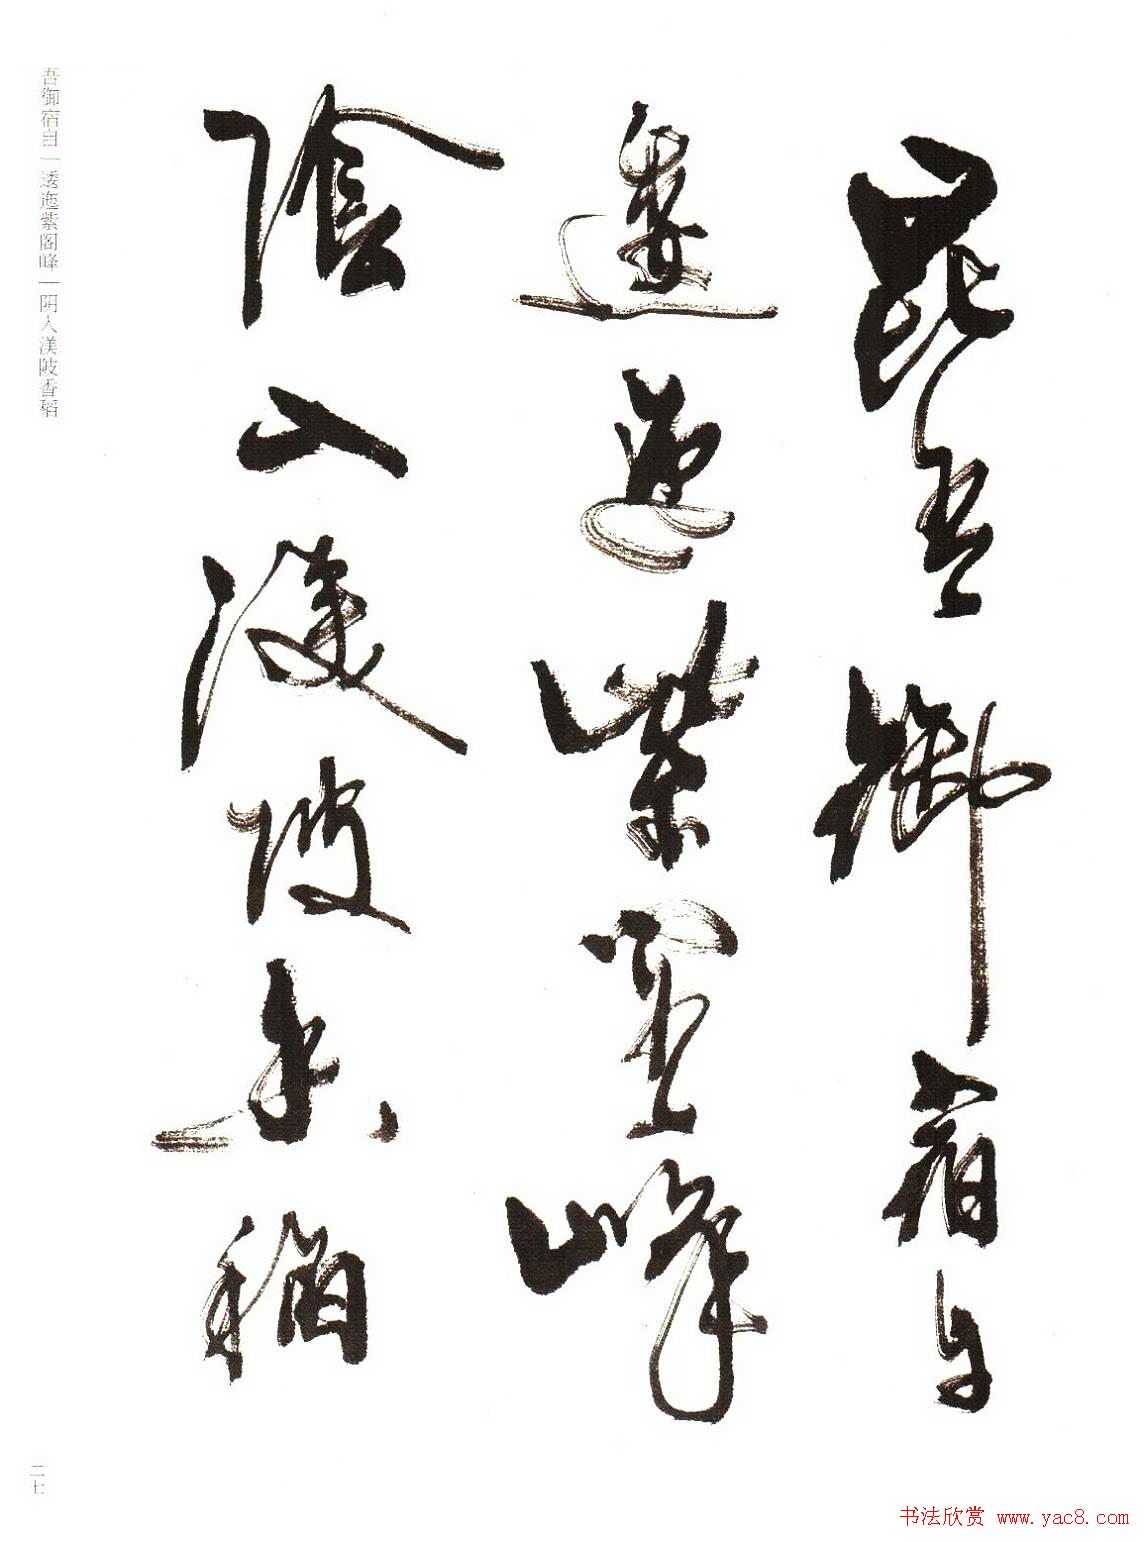 昆吾御宿自
逶迤紫阁峰
陰入渼陂香稻
吾御宿自｜逶迤紫阁峰｜阴入渼陂香稻
二七
书法欣赏 www.yac8.com